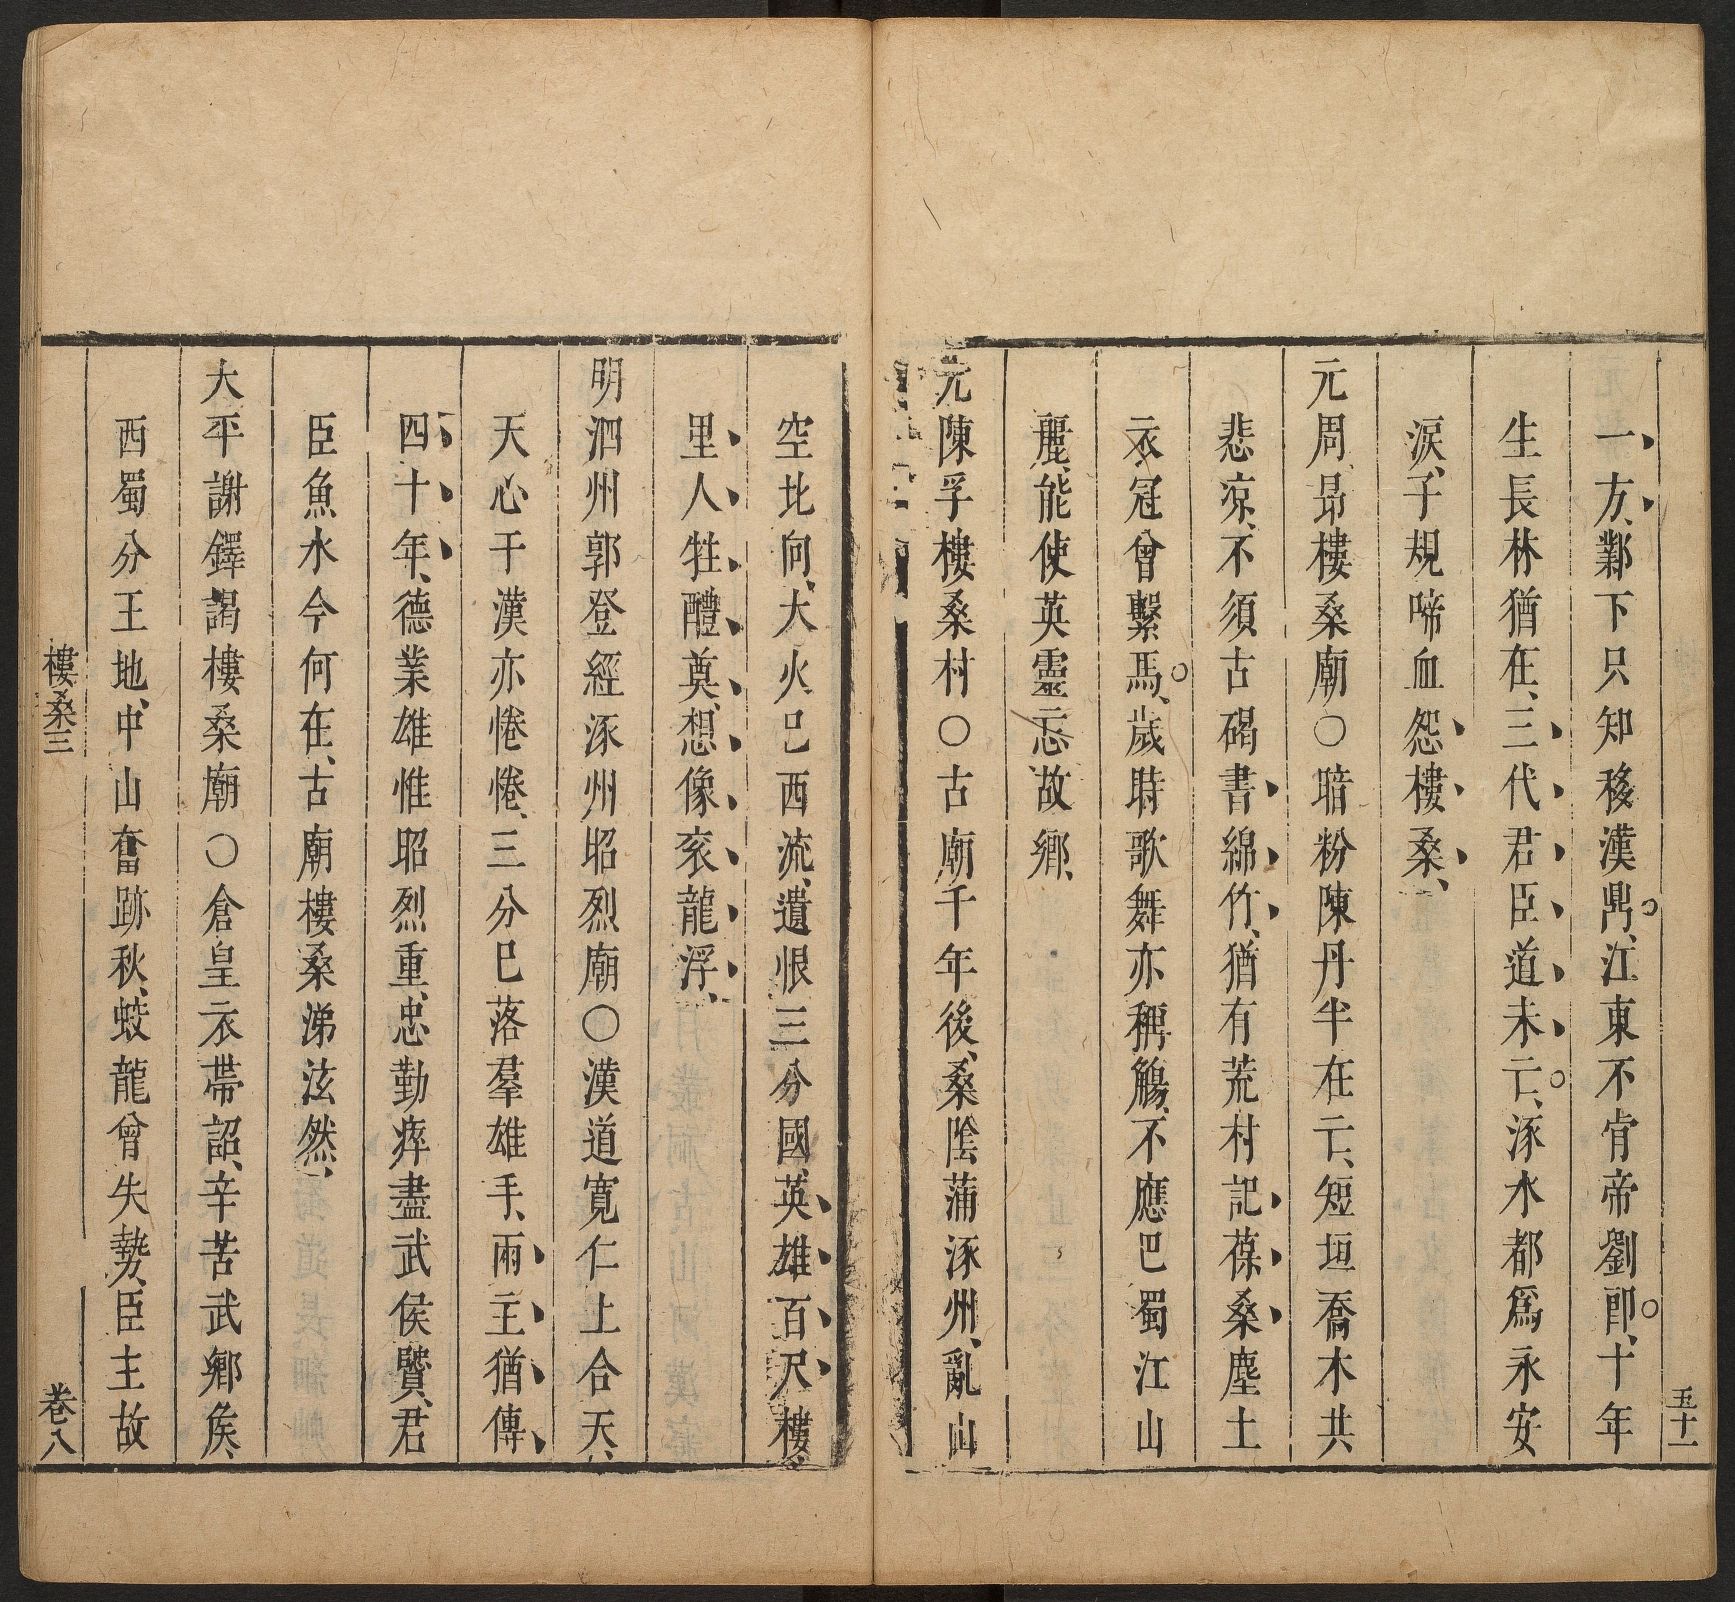 五十一
一方、鄴下只知移漢鼎、江東不肯帝劉郎、十年
生長林猶在、三代君臣道未亡、涿水都爲永安
淚、子規啼血怨樓桑、
元周昻樓桑廟○暗粉陳丹半在亡、短垣喬木共
悲凉、不須古碣書綿竹、猶有荒村記葆桑塵土
衣冠曾繫馬、歲時歌舞亦稱觴、不應巴蜀江山
麗、能使英靈忘故鄉、
元陳孚樓桑村○古廟千年後、桑陰蒲涿州、亂山
空北向、大火已西流、遺恨三分國、英雄百尺樓、
里人牲醴奠、想像衮龍浮、
明泗州郭登經涿州昭烈廟○漢道寬仁上合天、
天心于漢亦惓惓、三分已落羣雄手、兩主猶傳
四十年、德業雄惟昭烈重、忠勤瘁盡武侯賢、君
臣魚水今何在、古廟樓桑涕泫然、
大平謝鐸謁樓桑廟○倉皇衣帶詔、辛苦武鄉矦、
西蜀分王地、中山奮跡秋、蛟龍曾失勢、臣主故
樓桑三
卷八